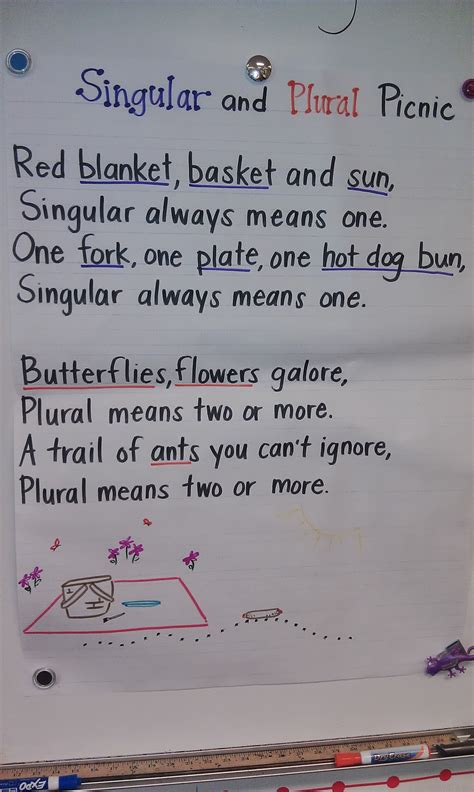 Singular and Plural Picnic
Red blanket, basket and sun,
Singular always means one.
One fork, one plate, one hot dog bun,
Singular always means one.
Butterflies, flowers galore,
Plural means two or more.
A trail of ants you can't ignore,
Plural means two or more.
EXPO
Dry Erase